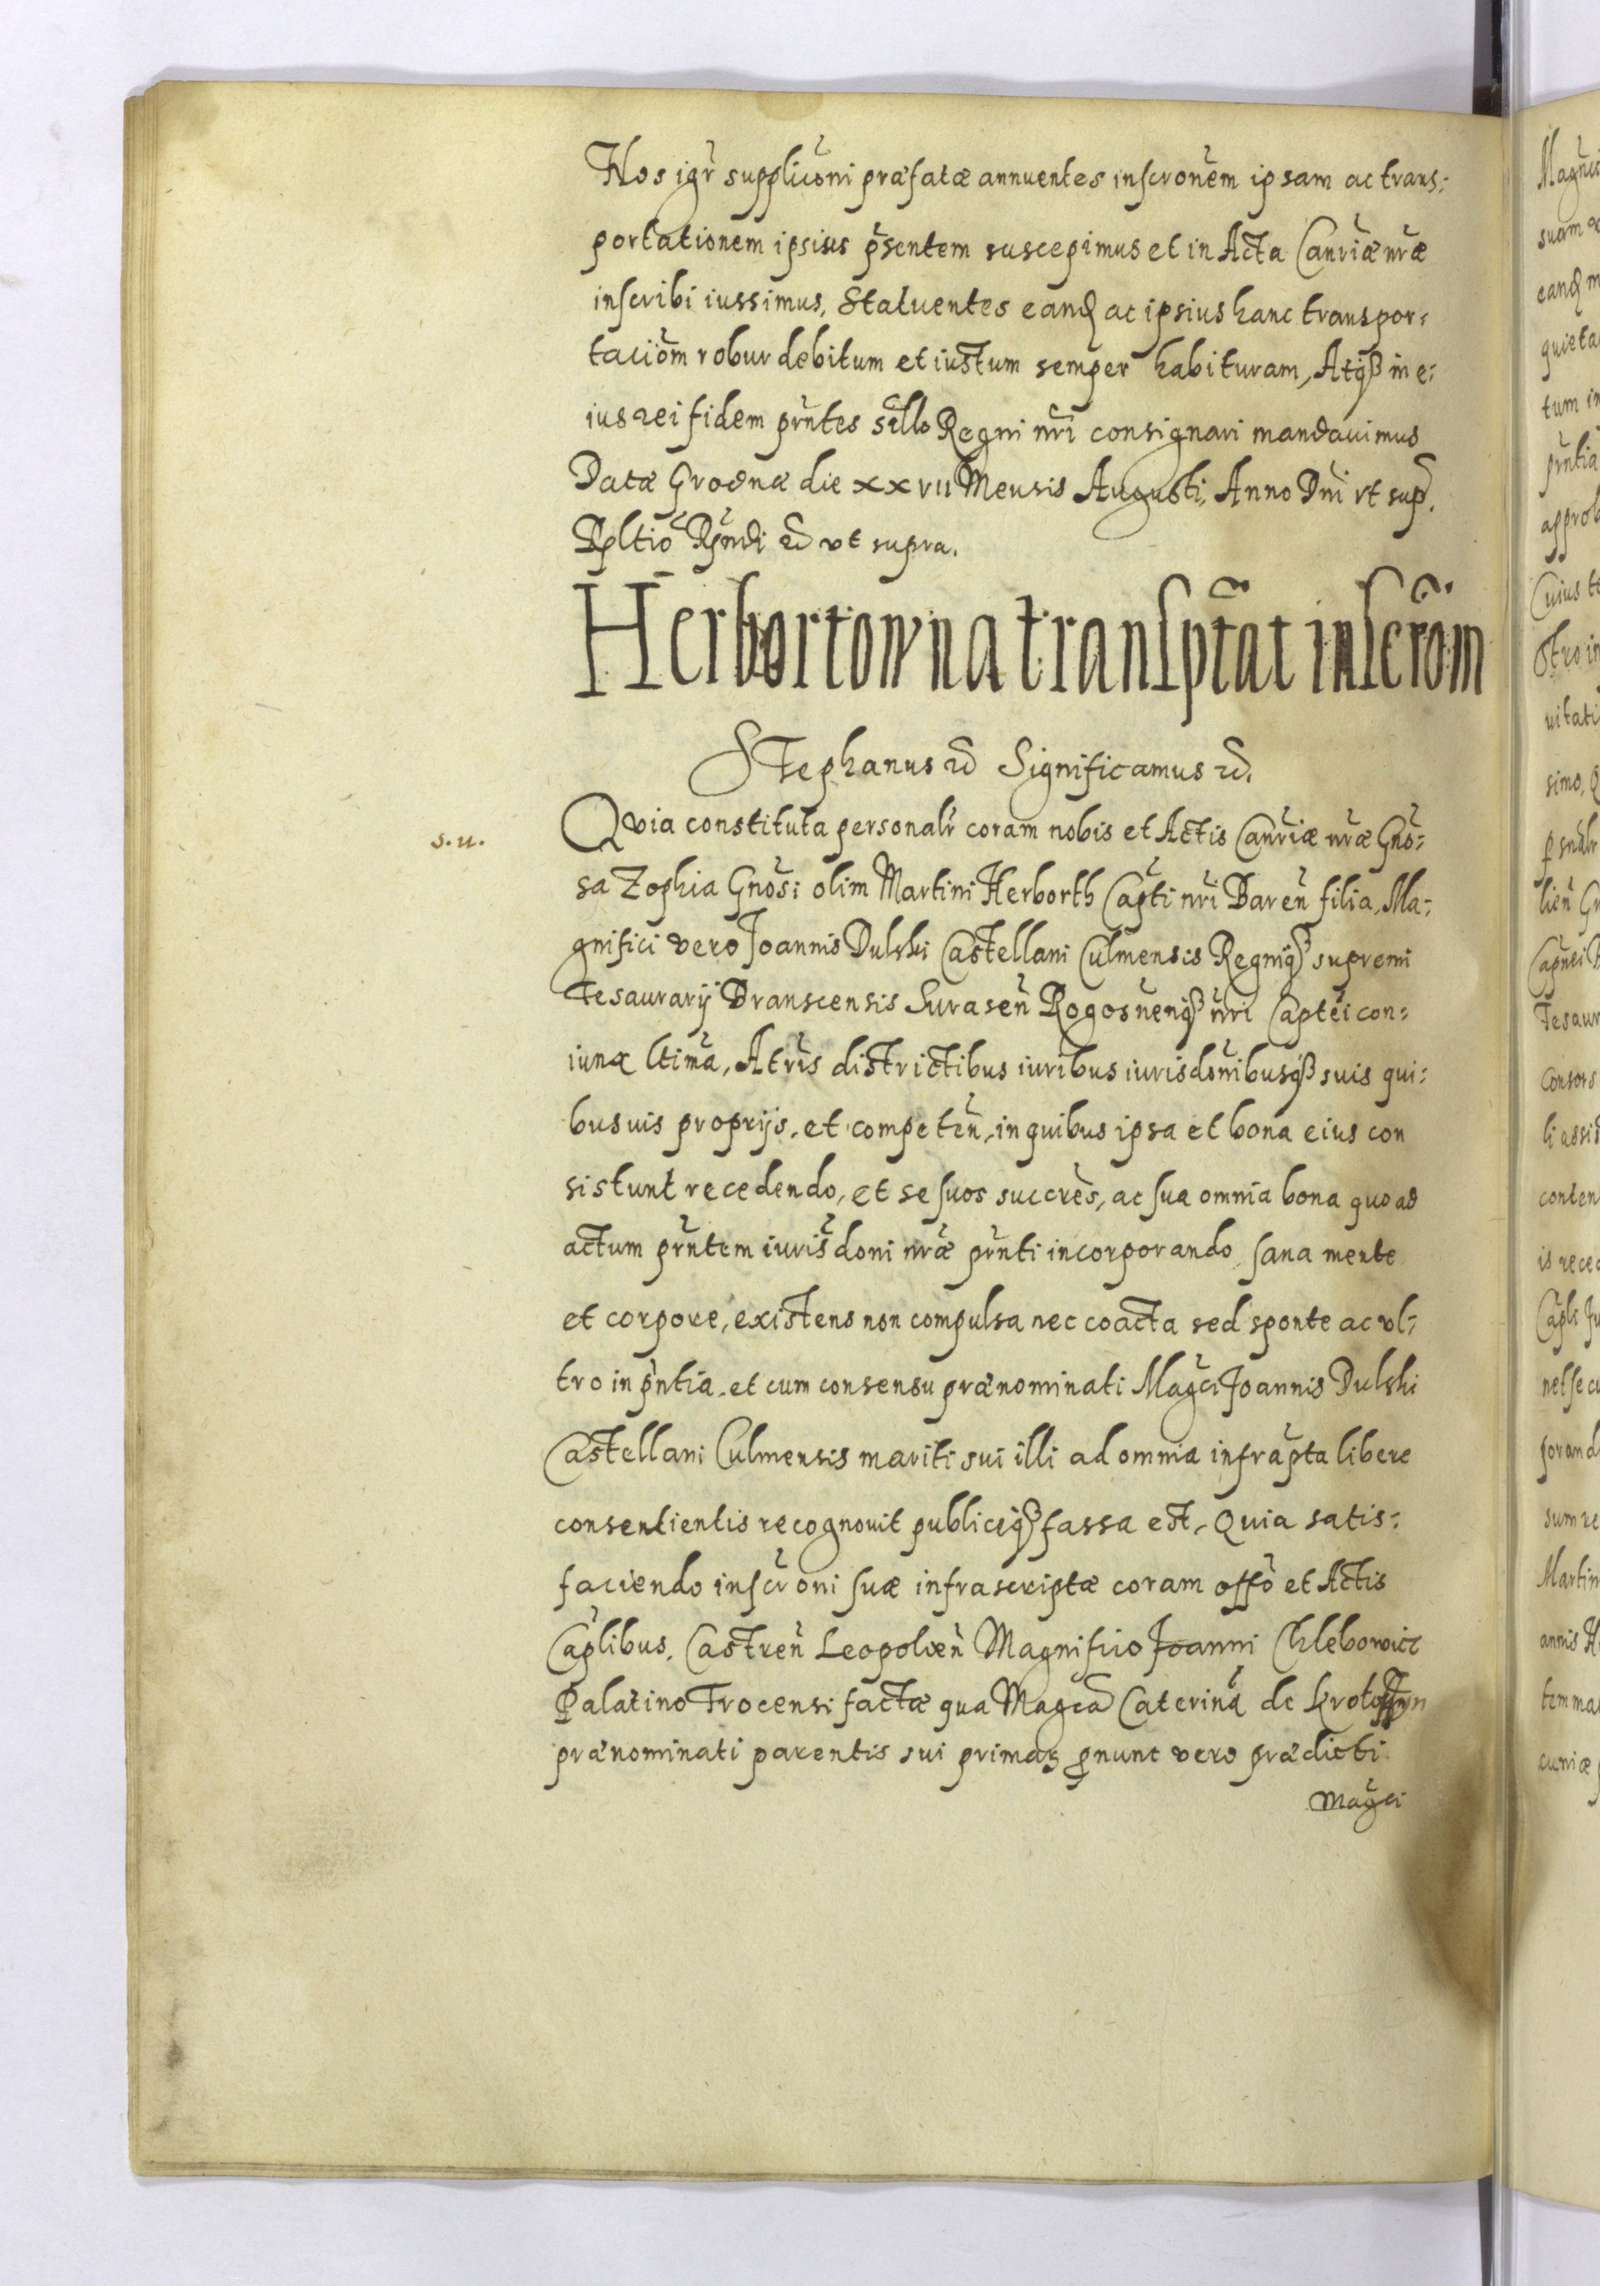 Nos igr̃ supplic̃oni præfatæ annuentes inscronẽm ipsam ac trans-
portationem ipsius p̃sentem suscepimus et in Acta Canr̃iæ nr̃æ
inscribi iussimus, Statuentes eandẽ ac ipsius hanc transpor-
taciom̃ robur debitum et iustum semper habituram, Atqȝ in e-
ius rei fidem pr̃ntes sillo Regni nr̃i consignari mandavimus
Datæ Grodnæ die xxvii Mensis Augusti, Anno Dn̄i vt sup̃.
Rpltiõ Rp̃ndi etc̃ vt supra.
Herbortowna transp̃tat inscrõm
Stephanus etc̃ Significamus etc̃.
s. u.
Quia constituta personalr̃ coram nobis et Actis Canr̃iæ nr̃æ Gnõ-
sa Zophia Gnõsi olim Martini Herborth Capt̃i nr̃i Baren̄ filia, Ma-
gnifici vero Joannis Dulski Castellani Culmensis Regniqȝ supremi
Tesaurarij Branscensis Surasen̄ Rogosneniqȝ nr̃i Capt̃ei con-
iunx ltima, A tr̃is districtibus iuribus iurisdon̄ibusqȝ suis qui-
busuis proprijs, et competen̄, in quibus ipsa et bona eius con
sistunt recedendo, et se suos succrẽs, ac sua omnia bona quoad
actum pr̃ntem iuris̃doni nr̃æ pr̃nti incorporando, sana mente
et corpore, existens non compulsa nec coacta sed sponte ac vl-
tro in p̃ntia, et cum consensu prænominati Mag̃ci Joannis Dulski
Castellani Culmensis mariti sui illi ad omnia infrap̃ta libere
consentientis recognovit publiceqȝ fassa est, Quia satis-
faciendo inscr̃oni suæ infrascriptæ coram offõ et Actis
Cap̃libus, Castren̄ Leopolien̄ Magnifico Joanni Chlebowicz
Palatino Trocensi factæ qua Mag̃ca Caterina de Krotoszyn
prænominati parentis sui primaȝ p̱nunc vero prædicti
Mag̃ci